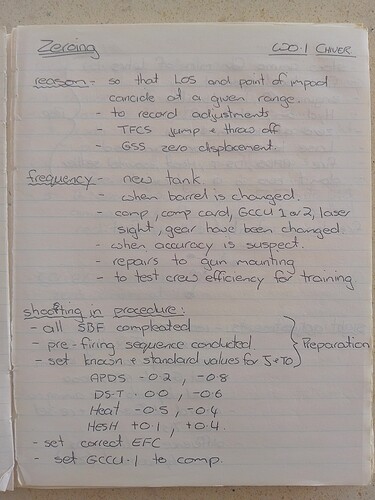 Zeroing WO.1 CHIVER.
reason - so that LOS and point of impact
cancide at a given range.
- to record adjustments
- TFCS jump + throw off
- GSS zero displacement.
frequency - new tank
- when barrel is changed.
- comp, comp card, GCCU 1 or 2, laser
sight, gear have been changed.
- when accuracy is suspect.
- repairs to gun mounting
- to test crew efficiency for training
shooting in procedure:
- all SBF compleated
- pre-firing sequence conducted. Preparation
- set known + standard values for J + TO
APDS -0.2, -0.8
DS-T 0.0, -0.6
Heat -0.5, -0.4
HESH +0.1, +0.4.
- set correct EFC
- set GCCU.1 to comp.